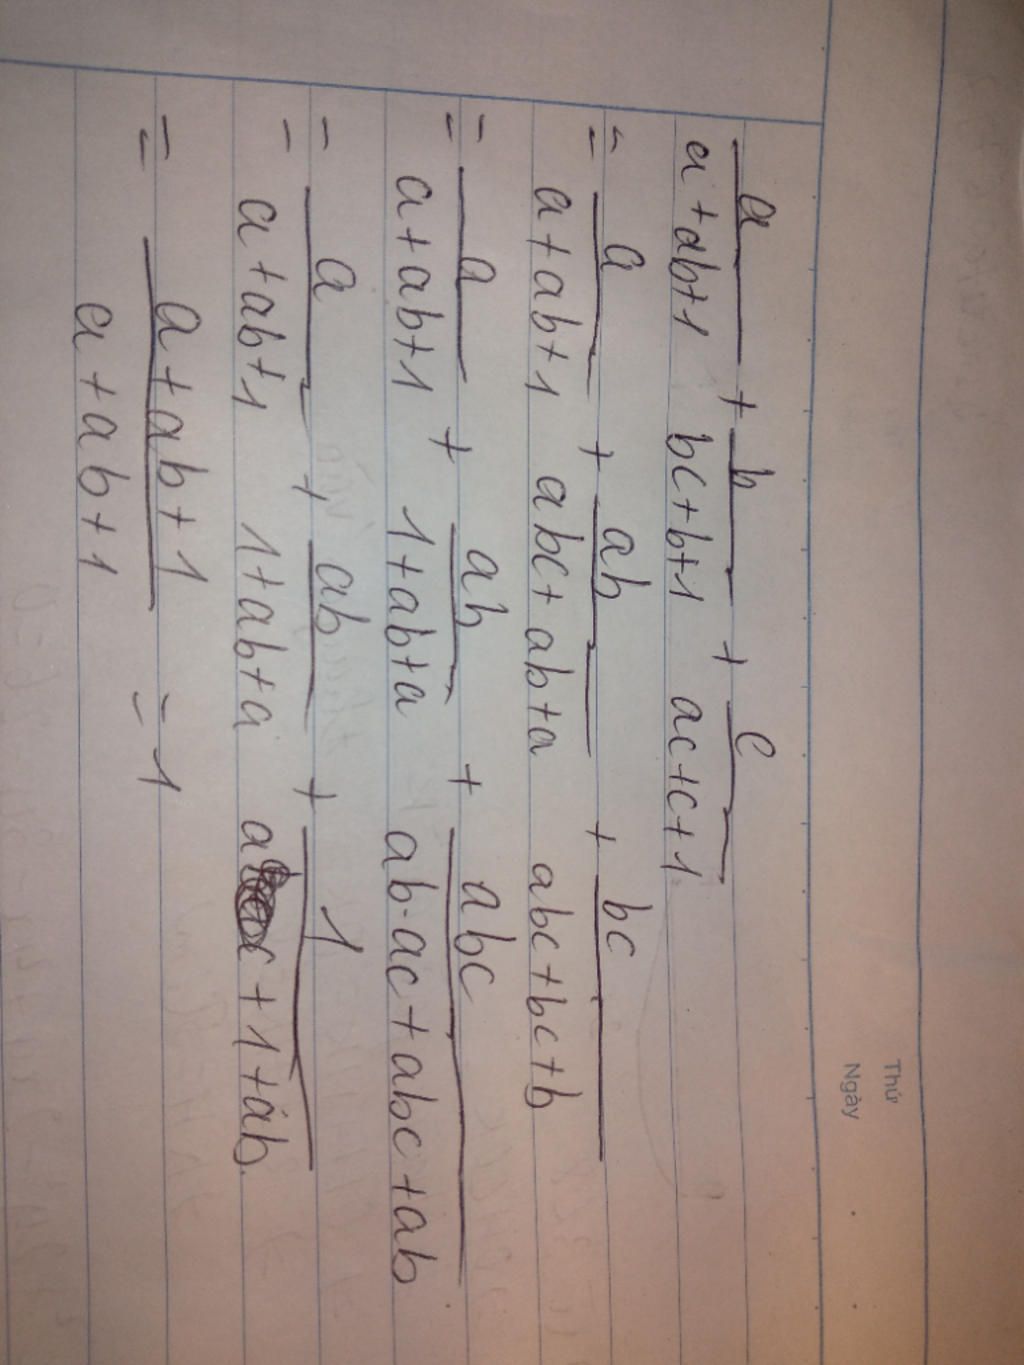 Thứ
Ngày
a/(a+ab+1) + b/(bc+b+1) + c/(ac+c+1)
= a/(a+ab+1) + ab/(abc+ab+a) + bc/(abc+bc+b)
= a/(a+ab+1) + ab/(1+ab+a) + abc/(ab·ac+abc+ab)
= a/(a+ab+1) + ab/(1+ab+a) + 1/(a+1+ab)
= (a+ab+1)/(a+ab+1) = 1